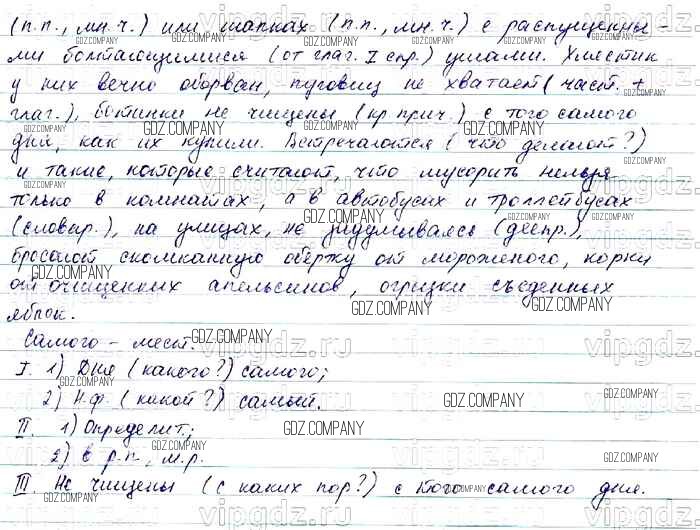 (п.п., мн.ч.) или шапках (п.п., мн.ч.) с распущенны-
ми болтающимися (от глаг. I спр.) ушами. Хлястик
у них вечно оборван, пуговиц не хватает (част. +
глаг.), ботинки не чищены (кр. прич.) с того самого
дня, как их купили. Встречаются (что делают?)
и такие, которые считают, что мусорить нельзя
только в комнатах, а в автобусах и троллейбусах
(словар.), на улицах, не задумываясь (деепр.),
бросают скомканную обёртку от мороженого, корки
от очищенных апельсинов, огрызки съеденных
яблок.
Самого – мест.
I. 1) Дня (какого?) самого;
2) Н.ф. (какой?) самый.
II. 1) Определит.;
2) в р.п., м.р.
III. Не чищены (с каких пор?) с того самого дня.
GDZ.COMPANY
vipgdz.ru